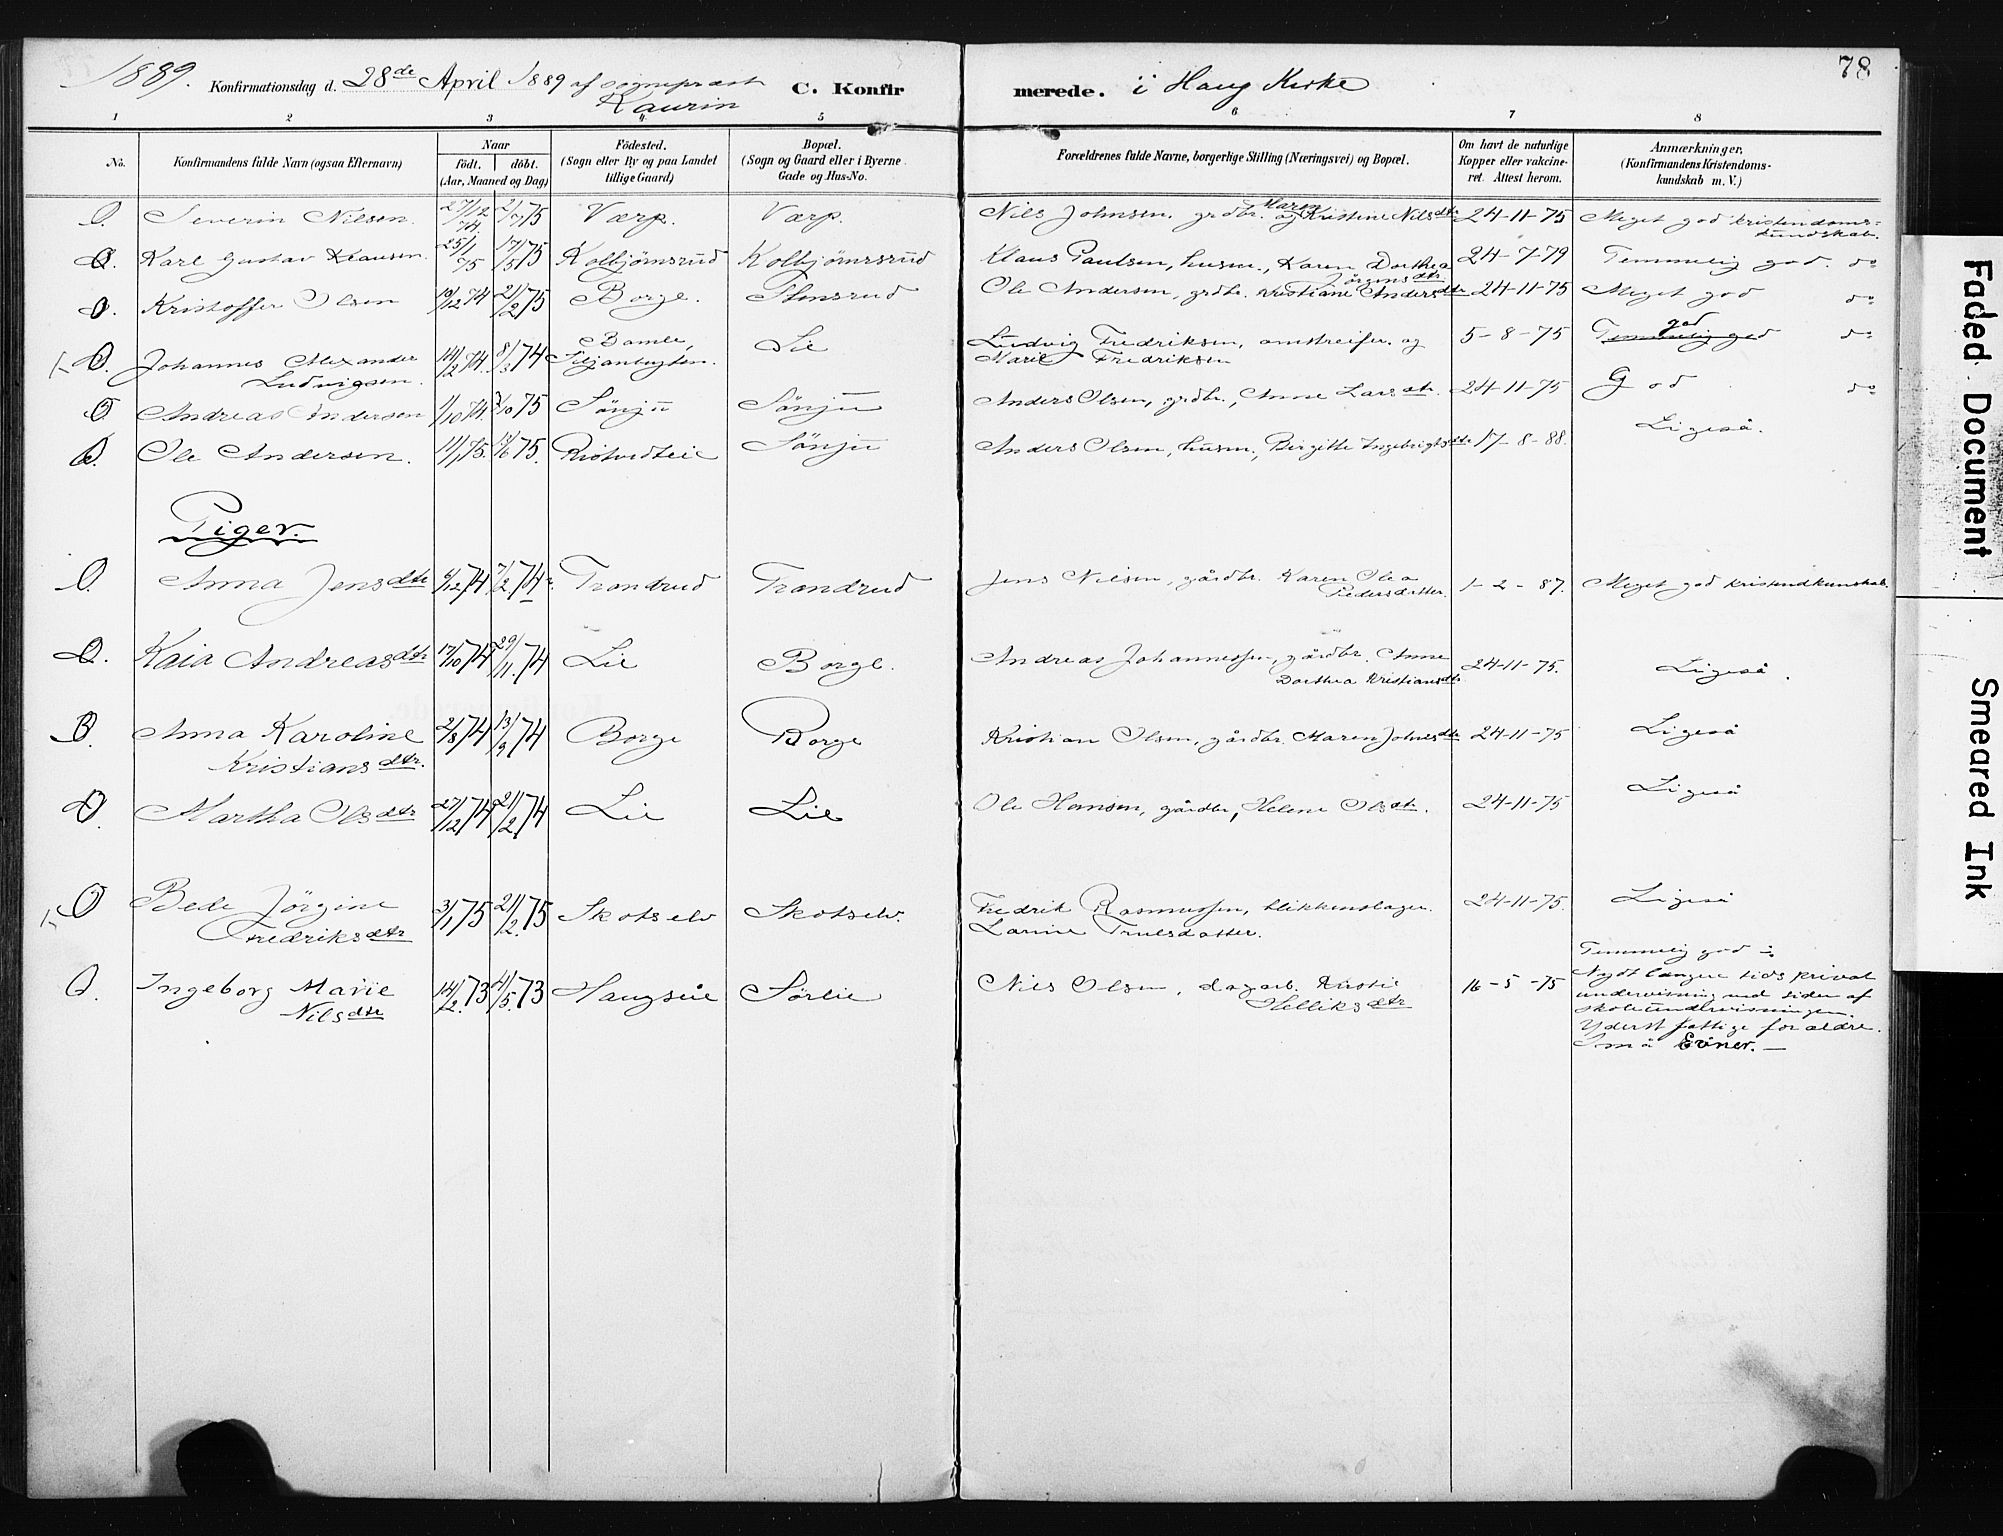 1889. Konfirmationsdag d. 28de April 1889 af sognepræst C. Konfirmerede. i Haug Kirke 78
Kaurin
1 2 3 4 5 6 7 8
No. Konfirmandens fulde Navn (ogsaa Efternavn) Naar födt. döbt. (Aar, Maaned og Dag) Födested. (Sogn eller By og paa Landet tillige Gaard) Bopæl. (Sogn og Gaard eller i Byerne Gade og Hus-No. Forældrenes fulde Navne, borgerlige Stilling (Næringsvei) og Bopæl. Om havt de naturlige Kopper eller vakcineret. Attest herom. Anmærkninger, (Konfirmandens Kristendomskundskab m. V.)
Severin Nilsen. 27/12 74. 2/7 75 Værp. Værp. Nils Johnsen. grdbr. og Maren Kristine Nilsdtr 24-11-75 Meget god kristendomskundskab.
Karl Gustav Klausen. 25/1 75 17/5 75 Kolbjörnsrud Kolbjörnsrud Klaus Paulsen, husm., Karen Dorthea Jörgensdtr. 24-7-79 Temmelig god. do
Kristoffer Olsen 10/12 74 21/2 75 Borge. Stensrud Ole Andersen, grdbr. Kristiane Andersdtr 24-11-75 Meget god do
Johannes Alexander Ludvigsen. 14/2 74. 8/3 74 Bamle, Lie Ludvig Fredriksen, omstreifer. og Marie Fredriksen 5-8-75 Temmelig god god do
Andreas Andersen 1/10 74. 3/10 75 Sönju Sönju Anders Olsen, grdbr., Anne Larsdtr. 24-11-75 God do
Ole Andersen. 11/1 75. 13/6 75. Sönju Anders Olsen, husm., Birgitte Ingebrigtsdtr 17-8-88. Ligeså.
Piger.
Anna Jensdtr 6/12 74 7/2 74 Trondrud Trondrud Jens Nilsen, gårdbr. Karen Olea Pedersdatter. 1-2-87. Meget god kristendkunskab.
Kaia Andreasdtr 17/10 74 29/11. 74 Lie Borge. Andreas Johannessen, gårdbr. Anne Dorthea Kristiansdtr 24-11-75. Ligeså.
Anna Karoline Kristiansdtr. 2/8 74 13/9 74 Borge Borge Kristian Olsen, gårdbr. Maren Johnsdtr 24-11-75 Ligeså
Martha Olsdtr 27/12 74 21/2 74 Lie Lie Ole Hansen, gårdbr, Helene Olsdtr. 24-11-75 Ligeså
Bede Jörgine Fredriksdtr 3/1 75 21/2. 75 Skotselv Skotselv. Fredrik Rasmussen, blikkenslager. Larine Truelsdatter. 24-11-75. Ligeså
Ingeborg Marie Nilsdtr 14/2. 73 11/5. 73 Sörlie Nils Olsen, dagarb. Kirstie Helliksdtr 16-5-75 Temmelig god
Nydt længere tids privat
undervisning ved siden af
skoleundervisningen.
Yderst fattige forældre.
Små Evner. —
Faded Document
Smeared Ink